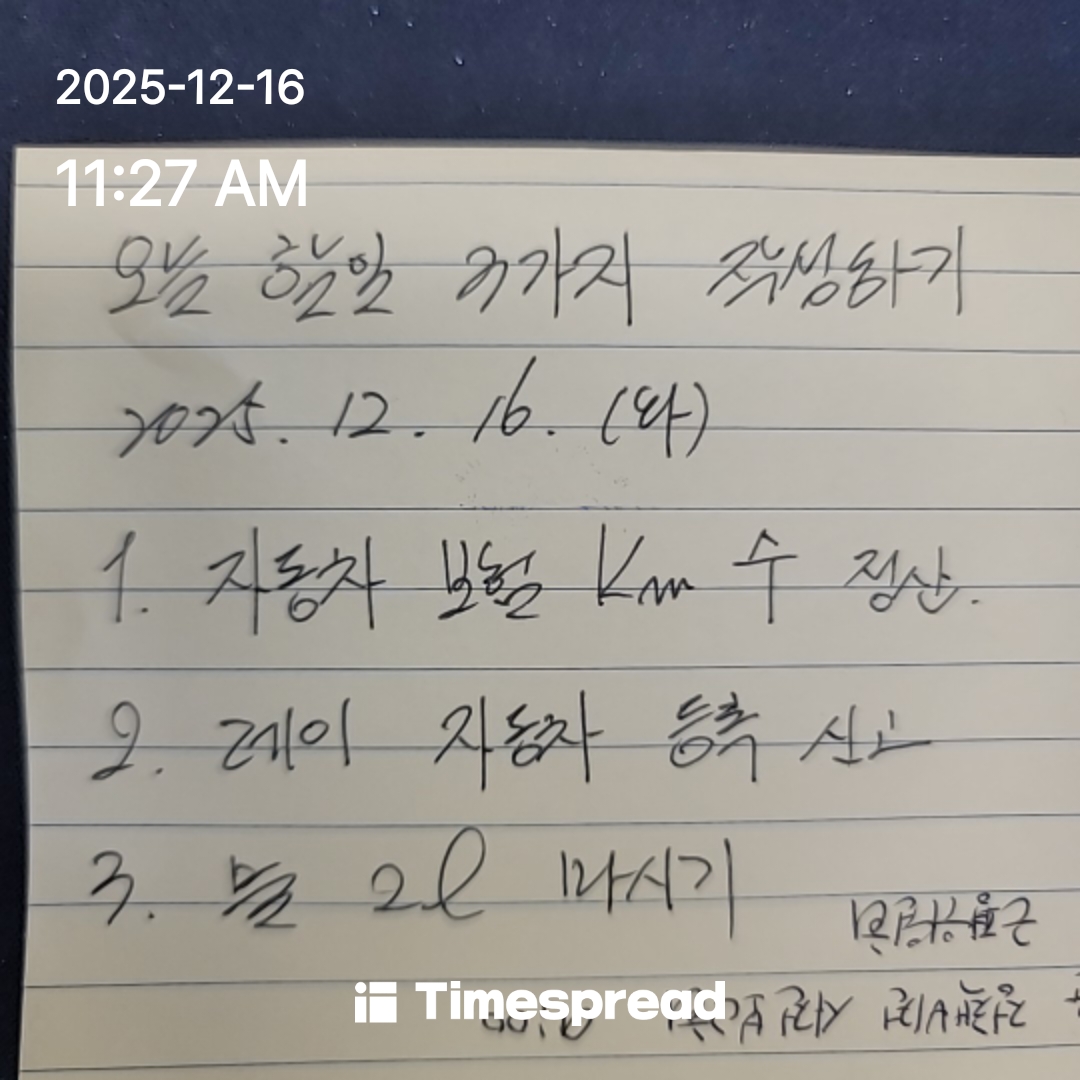 2025-12-16
11:27 AM
오늘 할일 3가지 작성하기
2025. 12. 16. (화)
1. 자동차 보험 Km 수 정산.
2. 레이 자동차 등록 신고
3. 물 2ℓ 마시기
Timespread